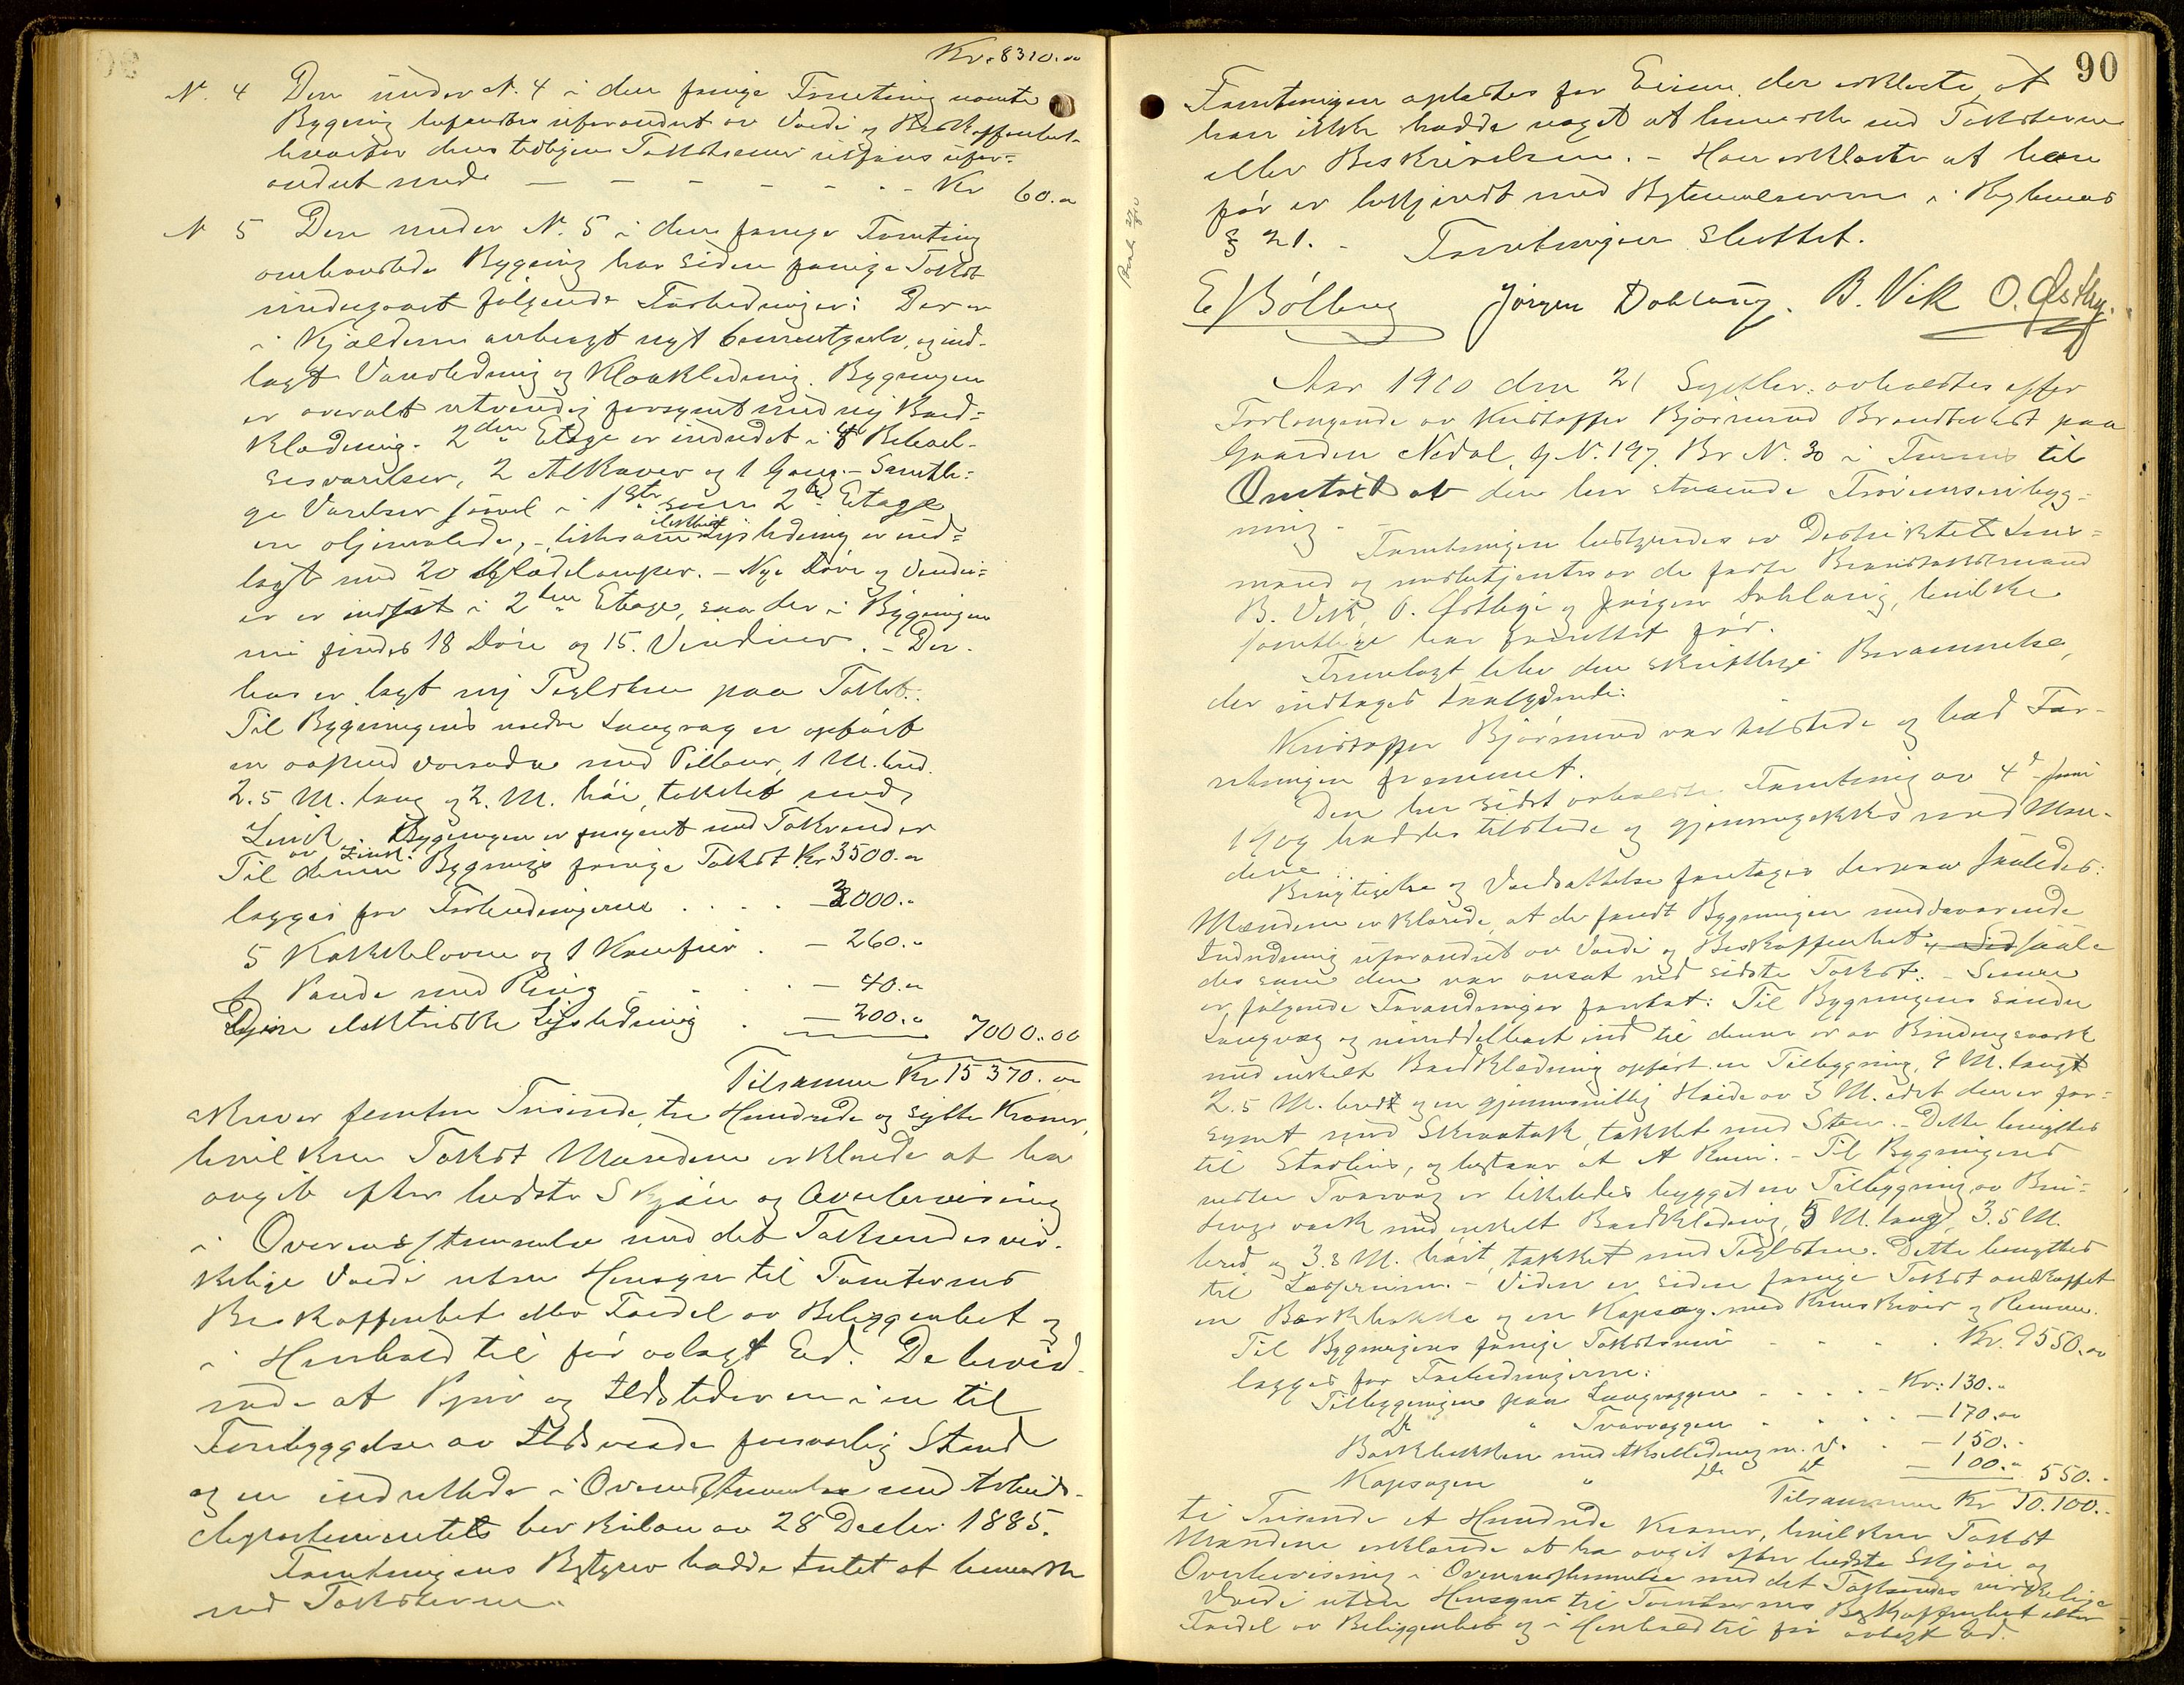 Kr. 8310.00
N. 4 Den under N. 4 i den forrige Forretning nævnte
Bygning befandtes uforandret av Værdi og Beskaffenhet
hvorfor dens tidligere Takstsum utføres ufor-
andret med — — — — — - - Kr 60.00
N 5 Den under N. 5 i den forrige Forretning
omhandlede Bygning har siden forrige Takst
undergaaet følgende Forbedringer: Der er
i Kjælderen anbragt nyt Cementgulv, og ind-
lagt Vandledning og Kloakledning. Bygningen
er overalt utvendig forsynet med ny Bord-
klædning. 2den Etage er indredet i 4 Beboel-
sesværelser, 2 Alkover og 1 Gang. - Samtli-
ge Værelser saavel i 1ste som 2den Etage
er oljemalede, - likesom elektrisk Lysledning er ind-
lagt med 20 Glødelamper. - Nye Døre og Vindu-
er er indsat i 2den Etage, saa der i Bygningen
nu findes 18 Døre og 15 Vinduer. - Der-
hos er lagt ny Teglsten paa Taket.
Til Bygningens nedre Langvæg er opført
en aapen Veranda med Pillarer, 1 M. bred
2.5 M. lang og 2. M. høi, tækket med
Zink. Bygningen er forsynet med Takrender
av Zink.
Til denne Bygnings forrige Takst Kr 3500.00
lægges for Forbedringerne . . . . — 3000.00
5 Kakkelovne og 1 Komfur . — 260.00
1 Pande med Ring - - . . — 40.00
Den elektriske Lysledning . — 200.00 7000.00
Tilsammen Kr 15 370.00
skriver femten Tusinde, tre Hundrede og sytti Kroner,
hvilken Takst Mændene erklærede at ha
avgit efter bedste Skjøn og Overbevisning
i Overensstemmelse med det Taksertes vir-
kelige Værdi uten Hensyn til Tomternes
Beskaffenhet eller Fordel av Beliggenhet og
i Henhold til før avlagt Ed. De bevid-
nede at Piper og Ildsteder er i en til
Forebyggelse av Ildsvaade forsvarlig Stand
og er indrettede i Overensstemmelse med Arbeids-
departementets Cirkulære av 28 Decbr 1885.
Forretningens Bestyrer hadde Intet at bemerke
ved Taksterne.
90
Forretningen oplæstes for Eieren, der erklærte, at
han ikke hadde noget at bemerke ved Taksterne
eller Beskrivelsen. - Han erklærte at han
før er bekjendt med Bestemmelserne i Reglernes
§ 21. - Forretningen sluttet.
E Bølberg Jørgen Dahlaug. B. Vik O. Østby.
Aar 1910 den 21 Septbr. avholdtes efter
Forlangende av Kristoffer Bjørnerud Brandtakst paa
Gaarden Nedal, G. N. 197. Br N. 30 i Furnes til
Omtakst av den her staaende Træværksbyg-
ning.
Forretningen bestyredes av Distriktets Lens-
mand og medbetjentes av de faste Brandtakstmænd
B. Vik, O. Østbye og Jørgen Dahlaug, hvilke
samtlige har forrettet før.
Fremlagt blev den skriftlige Berammelse,
der indtages saalydende:
Kristoffer Bjørnerud var tilstede og bad For-
retningen fremmet.
Den her sidst avholdte Forretning av 4de Juni
1909 hadtes tilstede og gjennemgikkes med Mæn-
dene.
Besigtigelse og Værdsættelse foretoges derpaa saaledes:
Mændene erklærede, at de fandt Bygningen med dens værende
Indredning uforandret av Værdi og Beskaffenhet saale-
des som den var ansat ved sidste Takst. - Senere
er følgende Forandringer foretat: Til Bygningens søndre
Langvæg og umiddelbart ind til denne er av Bindingsværk
med enkelt Bordklædning opført en Tilbygning, 4 M. langt
2.5 M. bredt og en gjennemsnitlig Høide av 3 M. idet den er for-
synet med Skraatak, tækket med Sten. - Dette benyttes
til Stadlius, og bestaar av et Rum. - Til Bygningens
vestre Tværvæg er likeledes bygget en Tilbygning av Bin-
dingsværk med enkelt Bordklædning, 5 M. lang, 3.5 M.
bred og 3.8 M. høit, tækket med Teglsten. Dette benyttes
til Lagerrum. - Videre er siden forrige Takst anskaffet
en Barkhakke og en Kapsag med Remskiver og Remme.
Til Bygningens forrige Takstsum - - . Kr. 9550.00
lægges for Forbedringerne:
Tilbygningen paa Langvæggen . . . . Kr: 130.00
do " Tværvæggen . . . . — 170.00
Barkhakken med Akselledning m. v. . — 150.00
Kapsagen " do do — 100.00 550.00
Tilsammen Kr 10.100.-
ti Tusinde et Hundrede Kroner, hvilken Takst
Mændene erklærede at ha avgit efter bedste Skjøn og
Overbevisning i Overensstemmelse med det Taksertes virkelige
Værdi uten Hensyn til Tomternes Beskaffenhet eller
Fordel av Beliggenhet og i Henhold til før avlagt Ed.